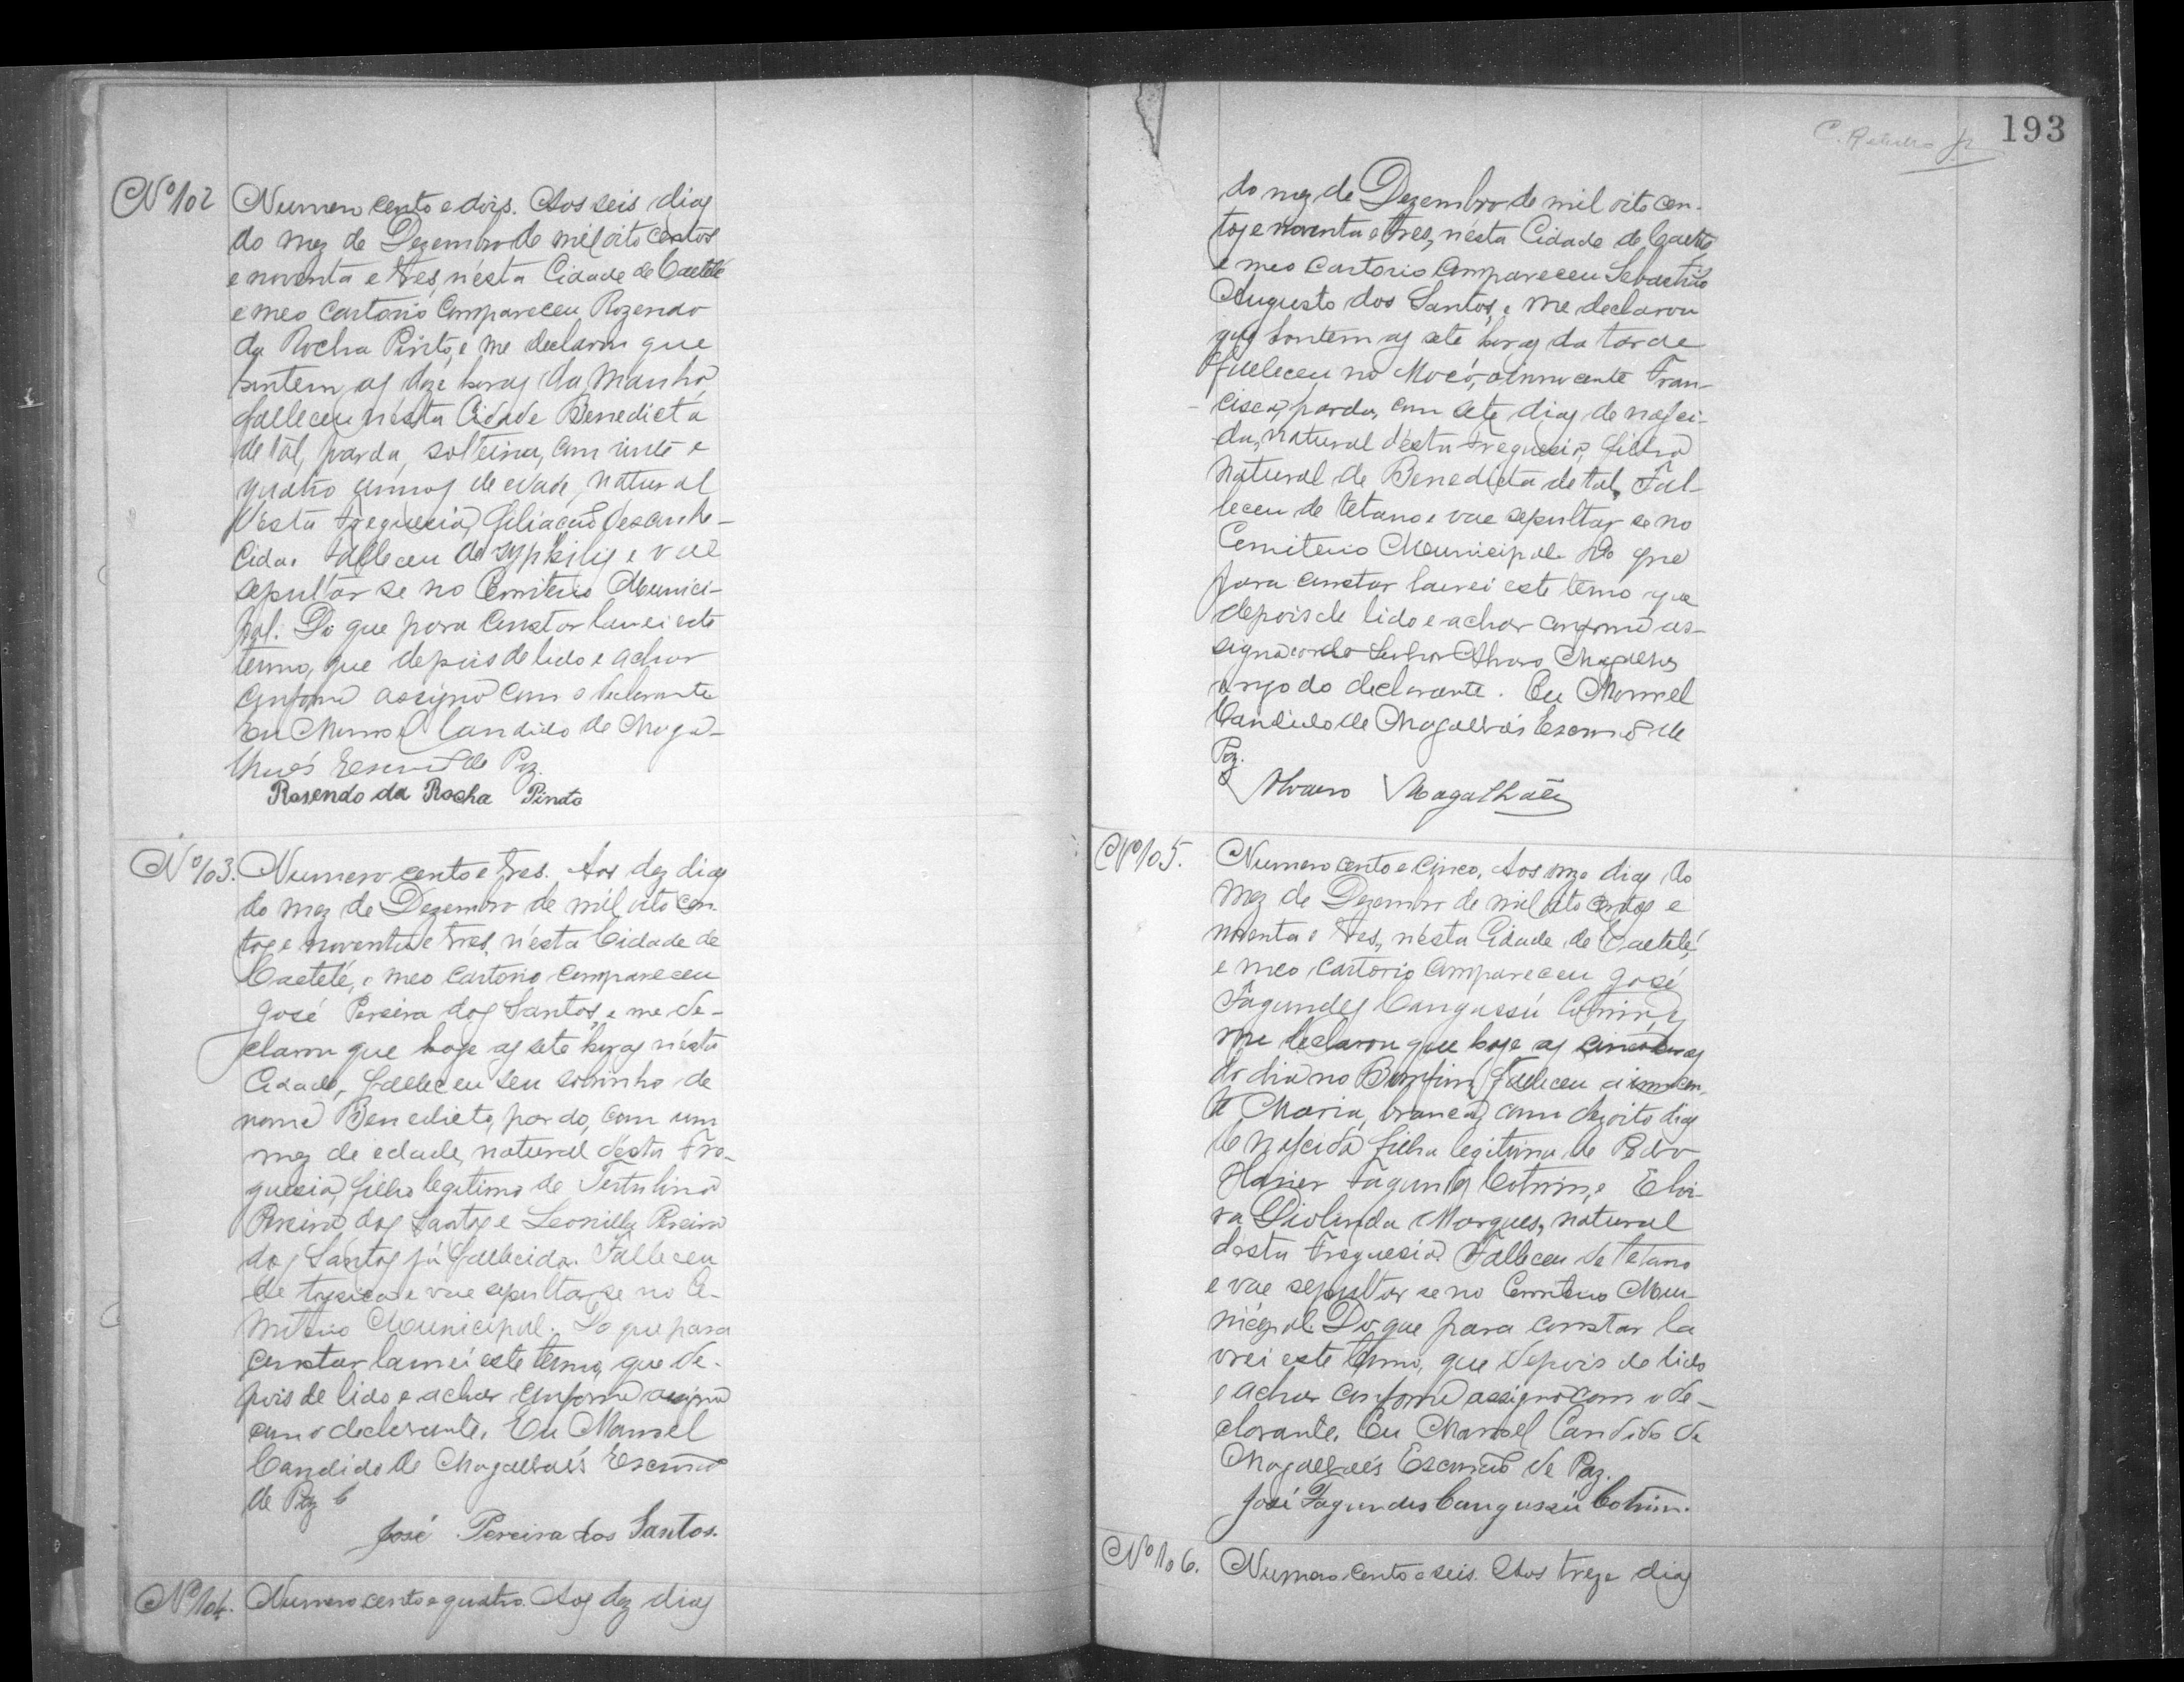 Nº 102
Numero cento e dois. Aos seis dias
do mez de Dezembro de mil oito centos
e noventa e tres, n'esta Cidade de Caeteté
e meo Cartorio Compareceu Rozendo
da Rocha Pinto, e me declarou que
hontem as doze horas da manhã,
falleceu n'esta Cidade Benedicta
de tal, parda, solteira, com vinte e
quatro annos de edade, natural
d'esta freguesia, filiação desconhe-
cida. Falleceu de syphilis e vae
sepultar se no Cemiterio Munici-
pal. Do que para constar lavrei este
termo, que depois de lido e achar
conforme assigno com o declarante
Eu Manoel Candido de Maga-
lhaẽs Escrivão de Paz.
Rosendo da Rocha Pinto
Nº 103.
Numero cento e tres. Aos dez dias
do mez de Dezembro de mil oito cen-
tos e noventa e tres, n'esta Cidade de
Caeteté, e meo Cartorio compareceu
José Pereira dos Santos, e me de-
clarou que hoje as sete horas n'esta
Cidade, falleceu seu sobrinho de
nome Benedicto, pardo, com um
mez de edade, natural d'esta Fre-
guesia, filho legitimo de
Pereira dos Santos e Leonilla Pereira
dos Santos já fallecida. Falleceu
de tysica e vae sepultar se no Ce-
miterio Municipal. Do que para
constar lavrei este termo, que de-
pois de lido e achar conforme assigno
com o declarante. Eu Manoel
Candido de Magalhaẽs Escrivão
de Paz
José Pereira dos Santos.
Nº 104.
Numero cento e quatro. Aos dez dias
193
do mez de Dezembro de mil oito cen-
tos e noventa e tres, n'esta Cidade de Caeteté
e meo Cartorio Compareceu Sebastião
Augusto dos Santos, e me declarou
que hontem as sete horas da tarde
falleceu no Mocó, a innocente Fran-
cisca, parda, com sete dias de nasci-
da, natural d'esta freguesia, filha
natural de Benedicta de tal, Fal-
leceu de tetano e vae sepultar se no
Cemiterio Municipal. Do que
para constar lavrei este termo que
depois de lido e achar conforme as-
signo com o Senhor Alvaro Magalhaes
a rogo do declarante. Eu Manoel
Candido de Magalhaẽs Escrivão de
Paz.
Alvaro Magalhaẽs
Nº 105.
Numero cento e cinco. Aos onze dias do
mez de Dezembro de mil oito centos e
noventa e tres, n'esta Cidade de Caeteté,
e meo Cartorio Compareceu José
Fagundes Cangussú Cotrim, e
me declarou que hoje as cinco horas
do dia no Bomfim, falleceu a innocen-
te Maria, branca, com dezoito dias
de nascida filha legitima de Pedro
Xavier Fagundes Cotrim, e Elvi-
ra Diolinda Marques, natural
desta Freguesia. Falleceu de tetano
e vae sepultar se no Cemiterio Mu-
nicipal. Do que para constar la
vrei este termo, que depois de lido
e achar conforme assigno com o de-
clarante. Eu Manoel Candido de
Magalhaẽs Escrivão de Paz.
José Fagundes Cangussú Cotrim.
Nº 106.
Numero cento e seis. Aos treze dias